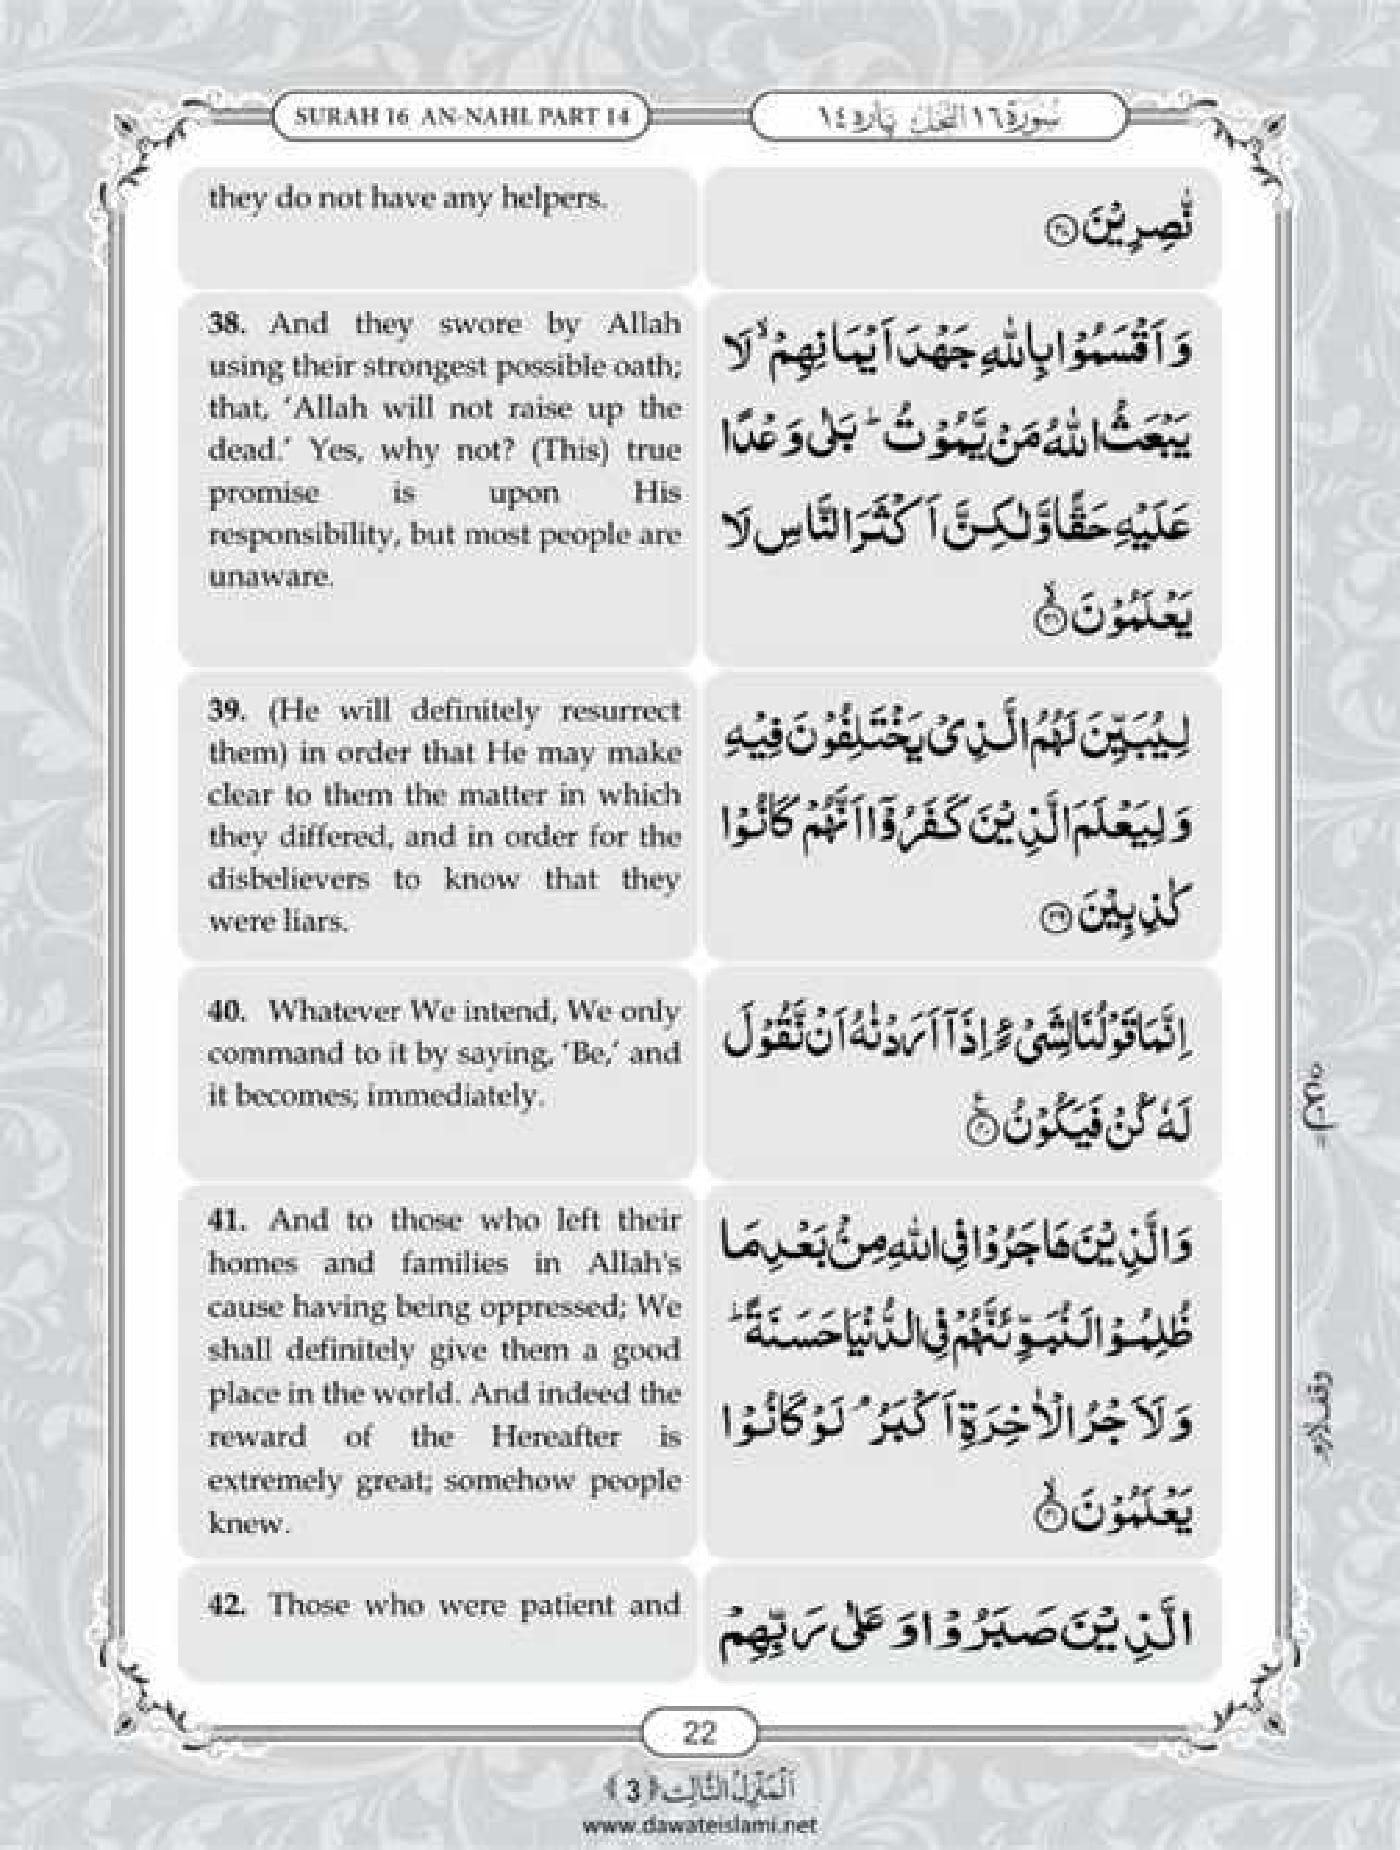 SURAH 16 AN-NAHL PART 14
سُوْرَة ١٦ النَّحْل پاره ١٤
they do not have any helpers.
نّٰصِرِیْنَ ۝۳۷
38. And they swore by Allah
using their strongest possible oath;
that, ‘Allah will not raise up the
dead.’ Yes, why not? (This) true
promise is upon His
responsibility, but most people are
unaware.
وَ اَقْسَمُوْا بِاللّٰهِ جَهْدَ اَیْمَانِهِمْ ۙ لَا
یَبْعَثُ اللّٰهُ مَنْ یَّمُوْتُ ؕ بَلٰى وَعْدًا
عَلَیْهِ حَقًّا وَّ لٰكِنَّ اَكْثَرَ النَّاسِ لَا
یَعْلَمُوْنَ ۙ۝۳۸
39. (He will definitely resurrect
them) in order that He may make
clear to them the matter in which
they differed, and in order for the
disbelievers to know that they
were liars.
لِیُبَیِّنَ لَهُمُ الَّذِیْ یَخْتَلِفُوْنَ فِیْهِ
وَ لِیَعْلَمَ الَّذِیْنَ كَفَرُوْۤا اَنَّهُمْ كَانُوْا
كٰذِبِیْنَ ۝۳۹
40. Whatever We intend, We only
command to it by saying, ‘Be,’ and
it becomes; immediately.
اِنَّمَا قَوْلُنَا لِشَیْءٍ اِذَاۤ اَرَدْنٰهُ اَنْ نَّقُوْلَ
لَهٗ كُنْ فَیَكُوْنُ ۠۝۴۰
41. And to those who left their
homes and families in Allah's
cause having being oppressed; We
shall definitely give them a good
place in the world. And indeed the
reward of the Hereafter is
extremely great; somehow people
knew.
وَ الَّذِیْنَ هَاجَرُوْا فِی اللّٰهِ مِنْۢ بَعْدِ مَا
ظُلِمُوْا لَنُبَوِّئَنَّهُمْ فِی الدُّنْیَا حَسَنَةً ؕ
وَ لَاَجْرُ الْاٰخِرَةِ اَكْبَرُ ۘ لَوْ كَانُوْا
یَعْلَمُوْنَ ۙ۝۴۱
42. Those who were patient and
الَّذِیْنَ صَبَرُوْا وَ عَلٰى رَبِّهِمْ
وقف لازم
22
اَلْمَنْزِلُ الثَّالِث ﴿3﴾
www.dawateislami.net